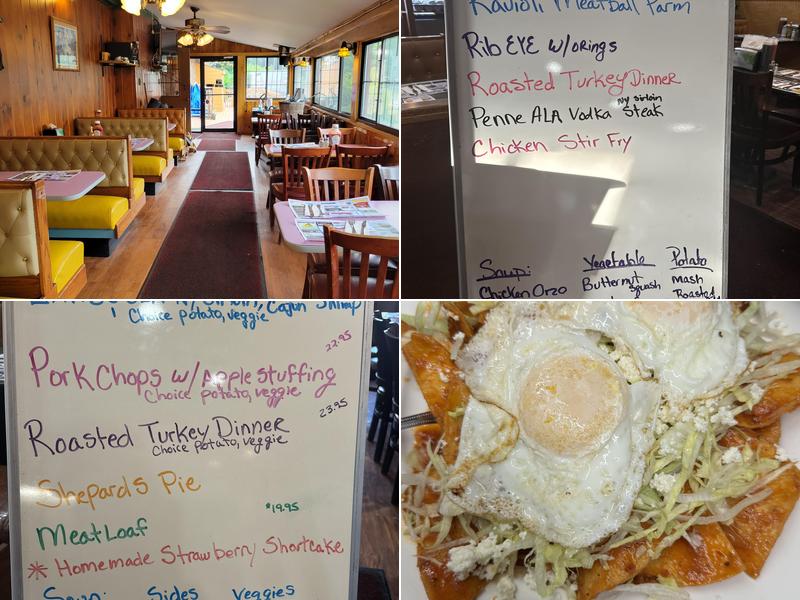 Ravioli Meatball Parm
Rib EYE W/oRings
Roasted Turkey Dinner
Penne ALA Vodka
ny sirloin
Steak
Chicken Stir Fry
Soup:
Chicken Orzo
Vegetable
Butternut
Squash
Potato
Mash
Roasted
Cajun Shrimp
Choice potato, veggie
22.95
Pork Chops w/ Apple Stuffing
Choice potato, veggie
23.95
Roasted Turkey Dinner
Choice potato, veggie
Shepards Pie
$19.95
MeatLoaf
* Homemade Strawberry Shortcake
Soup: Sides Veggies